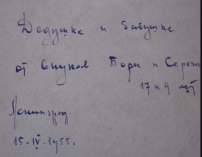 Дедушке и бабушке
от внуков Бори и Сережи
17 и 9 лет
Ленинград
15.IV.1955.